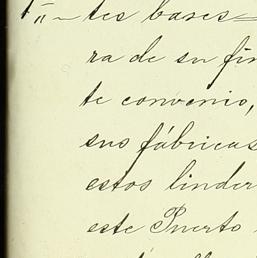 1ª ~ tes bases
ra de su fin
te convenio,
sus fábricas
estos linder
este Puerto